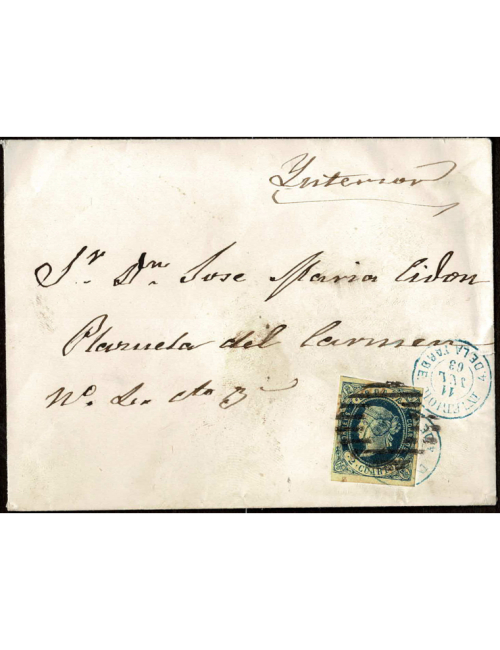 Interior
Sr. Dn. Jose Maria Cidon
Plazuela del Carmen
No. 2. cto 3º
INTERIOR
11
JUL
63
4 DE LA TARDE
2 CUARTOS